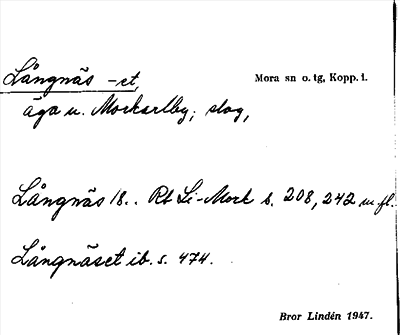 Långnäs -et,
Mora sn o. tg, Kopp. l.
äga u. Mockarlby; slog,
Långnäs 18.. Rb Li-Mock s. 208, 242 m fl.
Långnäset ib. s. 474.
Bror Lindén 1947.